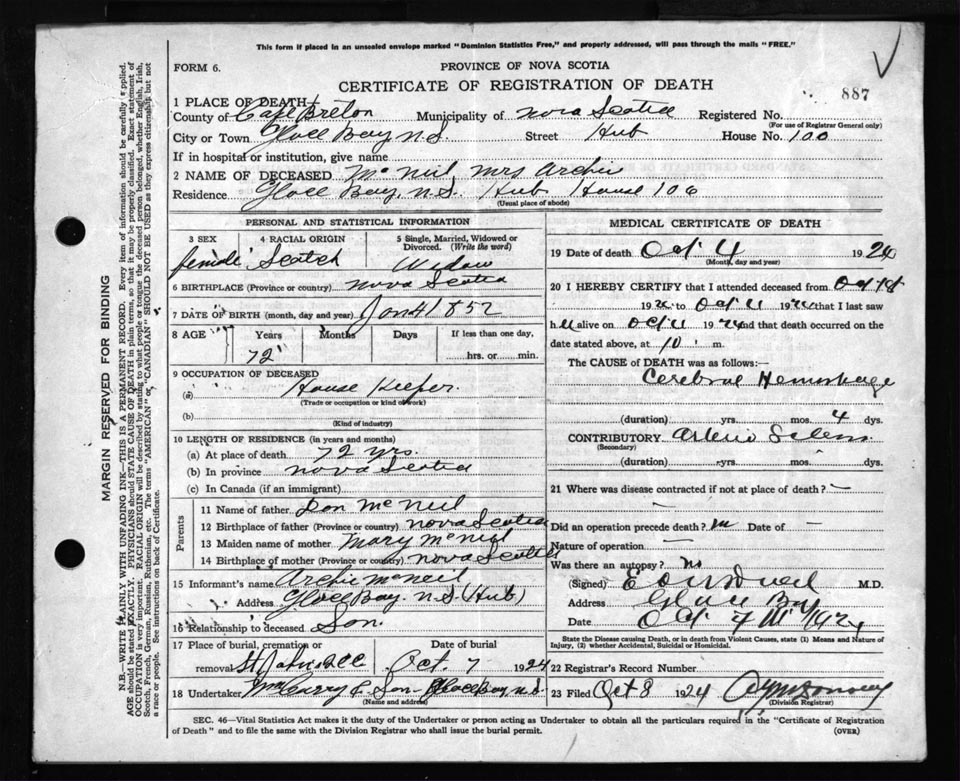 This form if placed in an unsealed envelope marked "Dominion Statistics Free," and properly addressed, will pass through the mails "FREE."
FORM 6.
PROVINCE OF NOVA SCOTIA
CERTIFICATE OF REGISTRATION OF DEATH
887
1 PLACE OF DEATH
County of Cape Breton Municipality of Nova Scotia Registered No.
(For use of Registrar General only)
City or Town Glace Bay N.S. Street Hub House No. 100
If in hospital or institution, give name
2 NAME OF DECEASED McNeil, Mrs Archie
Residence Glace Bay, N.S. Hub House 106
(Usual place of abode)
PERSONAL AND STATISTICAL INFORMATION
3 SEX 4 RACIAL ORIGIN 5 Single, Married, Widowed or Divorced. (Write the word)
female Scotch Widow
6 BIRTHPLACE (Province or country) Nova Scotia
7 DATE OF BIRTH (month, day and year) Jan 4 1852
8 AGE Years Months Days If less than one day,
72 hrs. or min.
9 OCCUPATION OF DECEASED
(a) House Keeper
(Trade or occupation or kind of work)
(b)
(Kind of industry)
10 LENGTH OF RESIDENCE (in years and months)
(a) At place of death 72 yrs.
(b) In province Nova Scotia
(c) In Canada (if an immigrant)
Parents
11 Name of father Don McNeil
12 Birthplace of father (Province or country) Nova Scotia
13 Maiden name of mother Mary McNeil
14 Birthplace of mother (Province or country) Nova Scotia
15 Informant's name Archie McNeil
Address Glace Bay N.S. (Hub)
16 Relationship to deceased Son.
17 Place of burial, cremation or Date of burial
removal St Johns Oct 7 1924
18 Undertaker Curry & Son Glace Bay, N.S.
(Name and address)
MEDICAL CERTIFICATE OF DEATH
19 Date of death Oct 4 1924
(Month, day and year)
20 I HEREBY CERTIFY that I attended deceased from Oct
192 to Oct 192 that I last saw
h alive on Oct 192 and that death occurred on the
date stated above, at 10 m.
The CAUSE of DEATH was as follows:—
Cerebral Hemorhage
(duration) yrs. mos. 4 dys.
CONTRIBUTORY Arterio
(Secondary)
(duration) yrs. mos. dys.
21 Where was disease contracted if not at place of death? —
Did an operation precede death? Date of —
Nature of operation —
Was there an autopsy? No
(Signed) M.D.
Address Glace Bay
Date Oct
State the Disease causing Death, or in death from Violent Causes, state (1) Means and Nature of
Injury, (2) whether Accidental, Suicidal or Homicidal.
22 Registrar's Record Number
23 Filed Oct 8 1924
(Division Registrar)
SEC. 46—Vital Statistics Act makes it the duty of the Undertaker or person acting as Undertaker to obtain all the particulars required in the "Certificate of Registration
of Death" and to file the same with the Division Registrar who shall issue the burial permit.
(OVER)
MARGIN RESERVED FOR BINDING
N.B.—WRITE PLAINLY WITH UNFADING INK—THIS IS A PERMANENT RECORD. Every item of information should be carefully supplied.
AGE should be stated EXACTLY. PHYSICIANS should STATE CAUSE OF DEATH in plain terms, so that it may be properly classified. Exact statement of
OCCUPATION is very important. RACIAL ORIGIN will be described by stating to what people or tongue the deceased person belonged, whether English, Irish,
Scotch, French, German, Russian, Ruthenian, etc. The terms "AMERICAN" or "CANADIAN" SHOULD NOT BE USED as they express citizenship but not
a race or people. See instructions on back of Certificate.